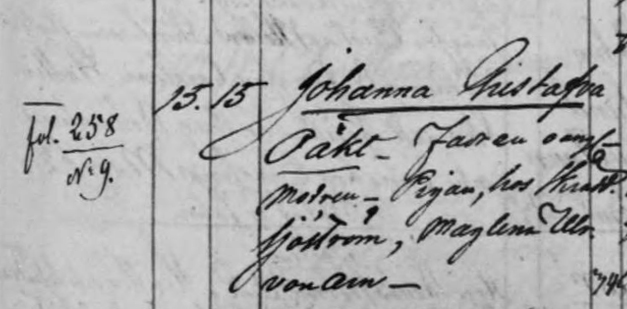 fol. 258
No 9.
13. 15 Johanna Gustafva
Oäkt - Fadren oangs
modren - Pigan, hos Skradd.
Sjöström, Maglena Ulr.
von